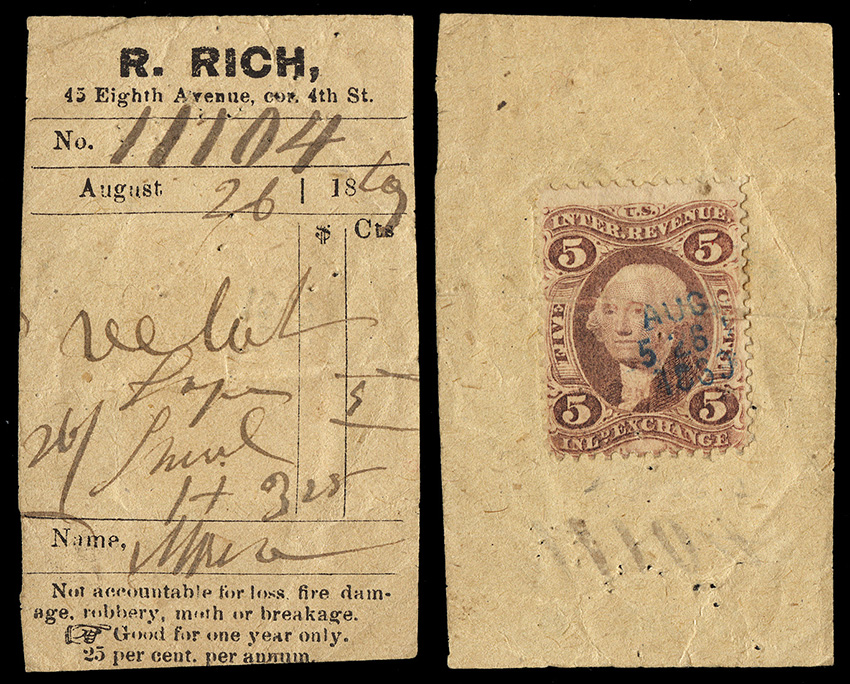 R. RICH,
45 Eighth Avenue, cor. 4th St.
No. 11104
August 26 | 1869
$ Cts
5
26/
3 25
Name,
Not accountable for loss, fire dam-
age, robbery, moth or breakage.
☞ Good for one year only.
25 per cent. per annum.
U.S.
INTER. REVENUE
5 5
FIVE CENTS
AUG
26
1869
5 5
INL. EXCHANGE